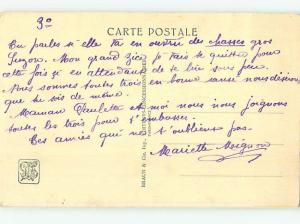 3º
CARTE POSTALE
Tu parles si elle va en ouvrir des chasses gros
Suzon. Mon grand je vais te quitter pour
cette fois ci en attendant de te lire sous peu.
Nous sommes toutes trois en bonne santé nous désirons
que tu sois de même.
Maman Paulette et moi nous nous joignons
toutes les trois pour t'embrasser.
Tes amies qui ne t'oublient pas.
Mariette
BRAUN & Cie, Imp.